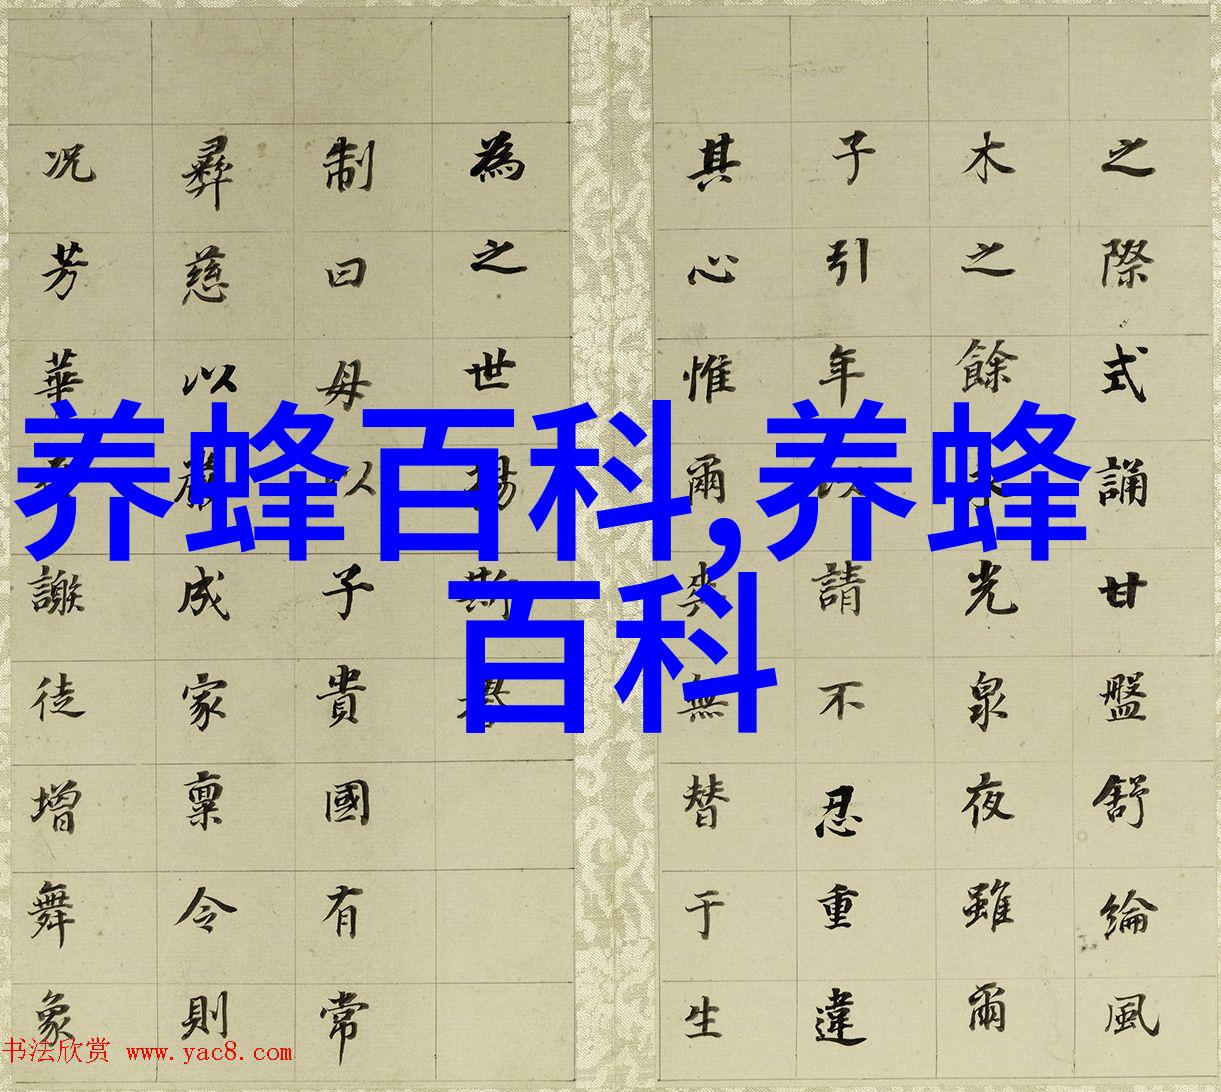 之際式誦甘盤舒綸風
木之餘光泉夜雖爾
子引年以請不忍重違
其心惟爾奕無替于生
為之世揚斯
制曰母以子貴國有常
彝慈以嚴成家稟令則
况芳華謝徒增舞象
养蜂百科,养蜂
百科
书法欣赏 www.yac8.com